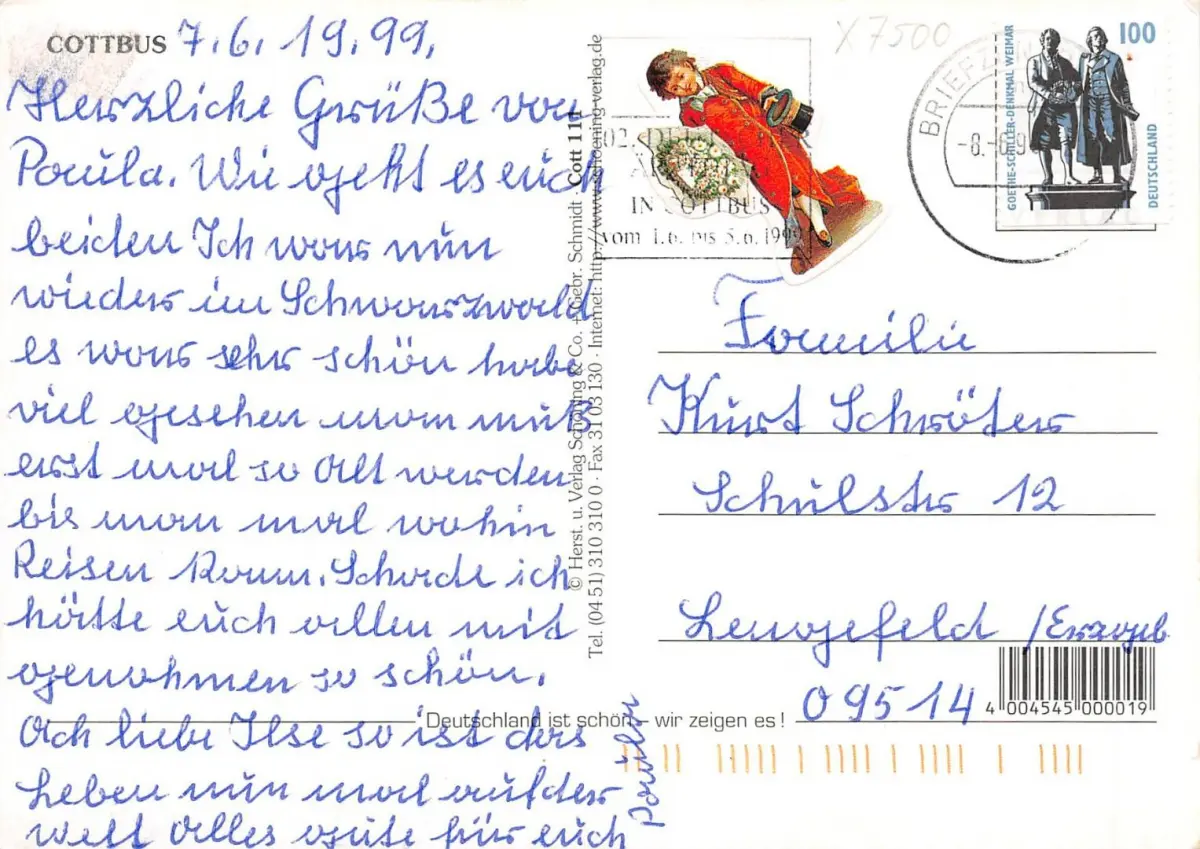 COTTBUS 7.6.1999,
Herzliche Grüße von
Paula. Wie geht es euch
beiden Ich war nun
wieder im Schwarzwald
es war sehr schön habe
viel gesehen man muß
erst mal so Alt werden
bis man mal wohin
Reisen kann. Schade ich
hätte euch allen mit
genohmen so schön.
Ach liebe Ilse so ist das
Leben nun mal auf der
Welt Alles gute für euch
Paula
© Herst. u. Verlag Schöning & Co. + Gebr. Schmidt Cott 111
Tel. (04 51) 310 310 0 · Fax 31 03 130 · Internet: http://www.schoening-verlag.de
Deutschland ist schön - wir zeigen es!
IN COTTBUS
vom 1.6. bis 5.6.1999
X7500
BRIEFZ
-8.-6.9
GOETHE-SCHILLER-DENKMAL WEIMAR
100
DEUTSCHLAND
Familie
Kurt Schröter
Schulstr 12
Lengefeld /Erzgeb
09514
4 004545 000019